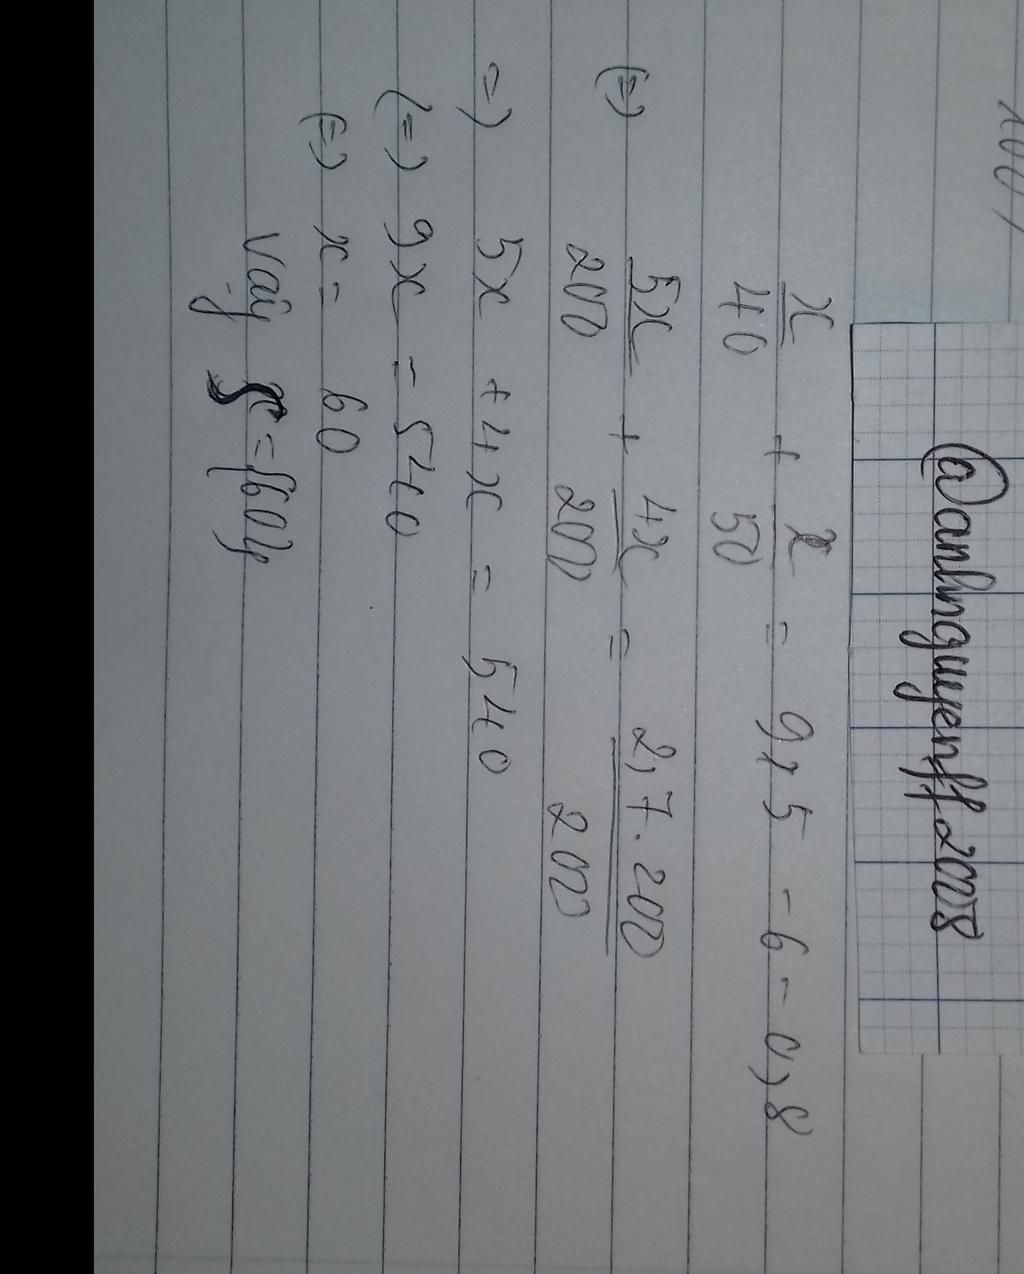 @anhnguyenff2008
x/40 + x/50 = 9,5 - 6 - 0,8
(=) 5x/200 + 4x/200 = 2,7.200/200
=) 5x + 4x = 540
(=) 9x = 540
(=) x = 60
Vậy S = {60}